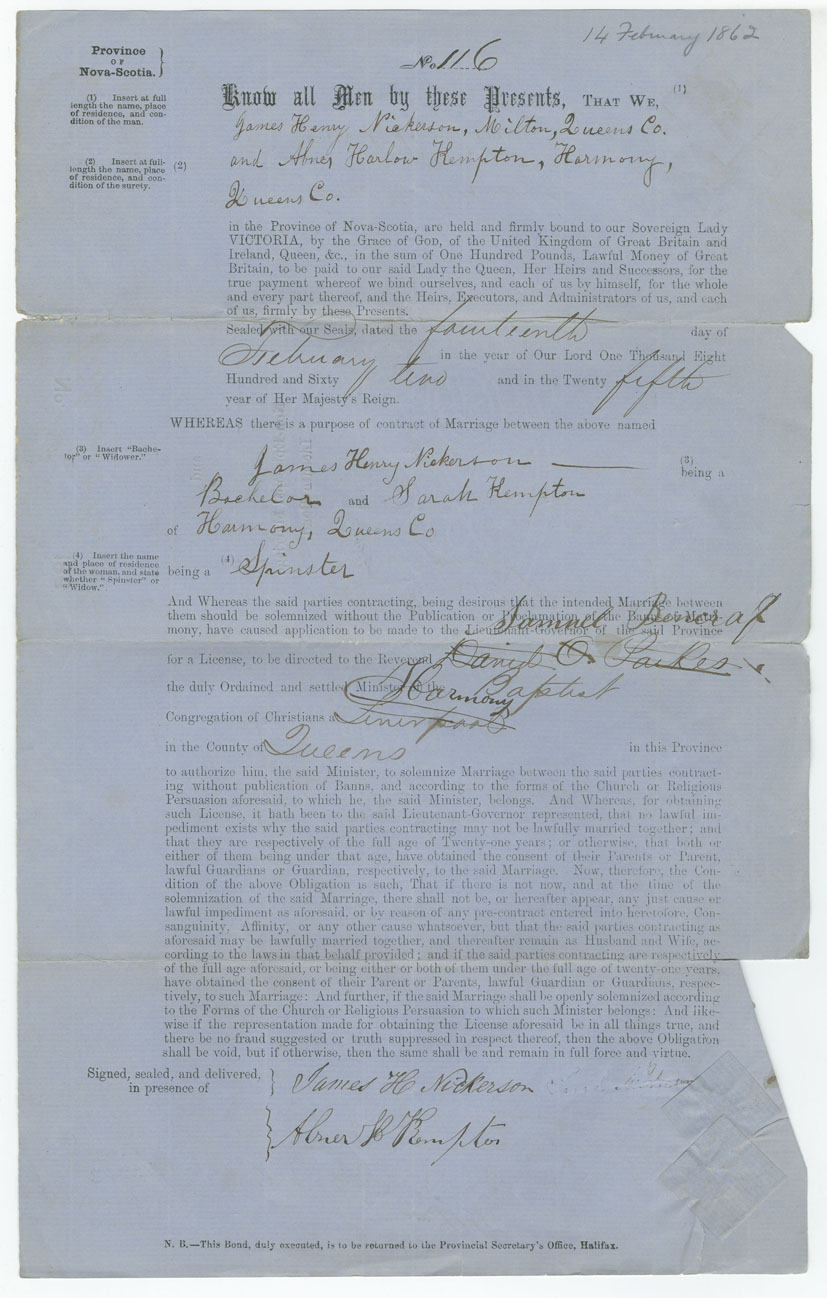 14 February 1862
Province
OF
Nova-Scotia. }
No 116
(1) Insert at full
length the name, place
of residence, and con-
dition of the man.
Know all Men by these Presents, THAT WE, (1)
James Henry Nickerson, Milton, Queens Co.
(2) Insert at full-
length the name, place
of residence, and con-
dition of the surety.
(2) and Abner Harlow Kempton, Harmony,
Queens Co.
in the Province of Nova-Scotia, are held and firmly bound to our Sovereign Lady
VICTORIA, by the Grace of GOD, of the United Kingdom of Great Britain and
Ireland, Queen, &c., in the sum of One Hundred Pounds, Lawful Money of Great
Britain, to be paid to our said Lady the Queen, Her Heirs and Successors, for the
true payment whereof we bind ourselves, and each of us by himself, for the whole
and every part thereof, and the Heirs, Executors, and Administrators of us, and each
of us, firmly by these Presents.
Sealed with our Seals, dated the fourteenth day of
February in the year of Our Lord One Thousand Eight
Hundred and Sixty two and in the Twenty fifth
year of Her Majesty's Reign.
WHEREAS there is a purpose of contract of Marriage between the above named
(3) Insert "Bache-
tor" or "Widower."
James Henry Nickerson (3)
being a
Bachelor and Sarah Kempton
of Harmony, Queens Co
(4) Insert the name
and place of residence
of the woman, and state
whether "Spinster" or
"Widow."
being a (4) Spinster
And Whereas the said parties contracting, being desirous that the intended Marriage between
them should be solemnized without the Publication or Proclamation of the Banns of Matri-
mony, have caused application to be made to the Lieutenant-Governor of the said Province
Samuel
for a License, to be directed to the Reverend David O. Parkes
the duly Ordained and settled Minister of the Baptist
Harmony
Congregation of Christians at Liverpool
in the County of Queens in this Province
to authorize him, the said Minister, to solemnize Marriage between the said parties contract-
ing without publication of Banns, and according to the forms of the Church or Religious
Persuasion aforesaid, to which he, the said Minister, belongs. And Whereas, for obtaining
such License, it hath been to the said Lieutenant-Governor represented, that no lawful im-
pediment exists why the said parties contracting may not be lawfully married together; and
that they are respectively of the full age of Twenty-one years; or otherwise, that both or
either of them being under that age, have obtained the consent of their Parents or Parent,
lawful Guardians or Guardian, respectively, to the said Marriage. Now, therefore, the Con-
dition of the above Obligation is such, That if there is not now, and at the time of the
solemnization of the said Marriage, there shall not be, or hereafter appear, any just cause or
lawful impediment as aforesaid, or by reason of any pre-contract entered into heretofore, Con-
sanguinity, Affinity, or any other cause whatsoever, but that the said parties contracting as
aforesaid may be lawfully married together, and thereafter remain as Husband and Wife, ac-
cording to the laws in that behalf provided; and if the said parties contracting are respectively
of the full age aforesaid, or being either or both of them under the full age of twenty-one years,
have obtained the consent of their Parent or Parents, lawful Guardian or Guardians, respec-
tively, to such Marriage: And further, if the said Marriage shall be openly solemnized according
to the Forms of the Church or Religious Persuasion to which such Minister belongs: And like-
wise if the representation made for obtaining the License aforesaid be in all things true, and
there be no fraud suggested or truth suppressed in respect thereof, then the above Obligation
shall be void, but if otherwise, then the same shall be and remain in full force and virtue.
Signed, sealed, and delivered, }
in presence of
James H Nickerson
Abner H Kempton
N. B.—This Bond, duly executed, is to be returned to the Provincial Secretary's Office, Halifax.